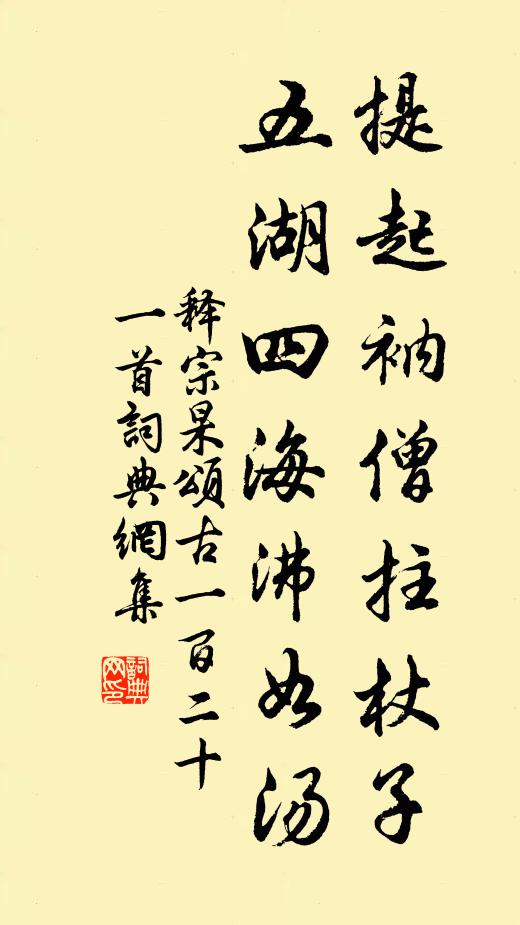 提起衲僧拄杖子
五湖四海沸如汤
释宗杲颂古一百二十
一首詞典網集
詞典網印